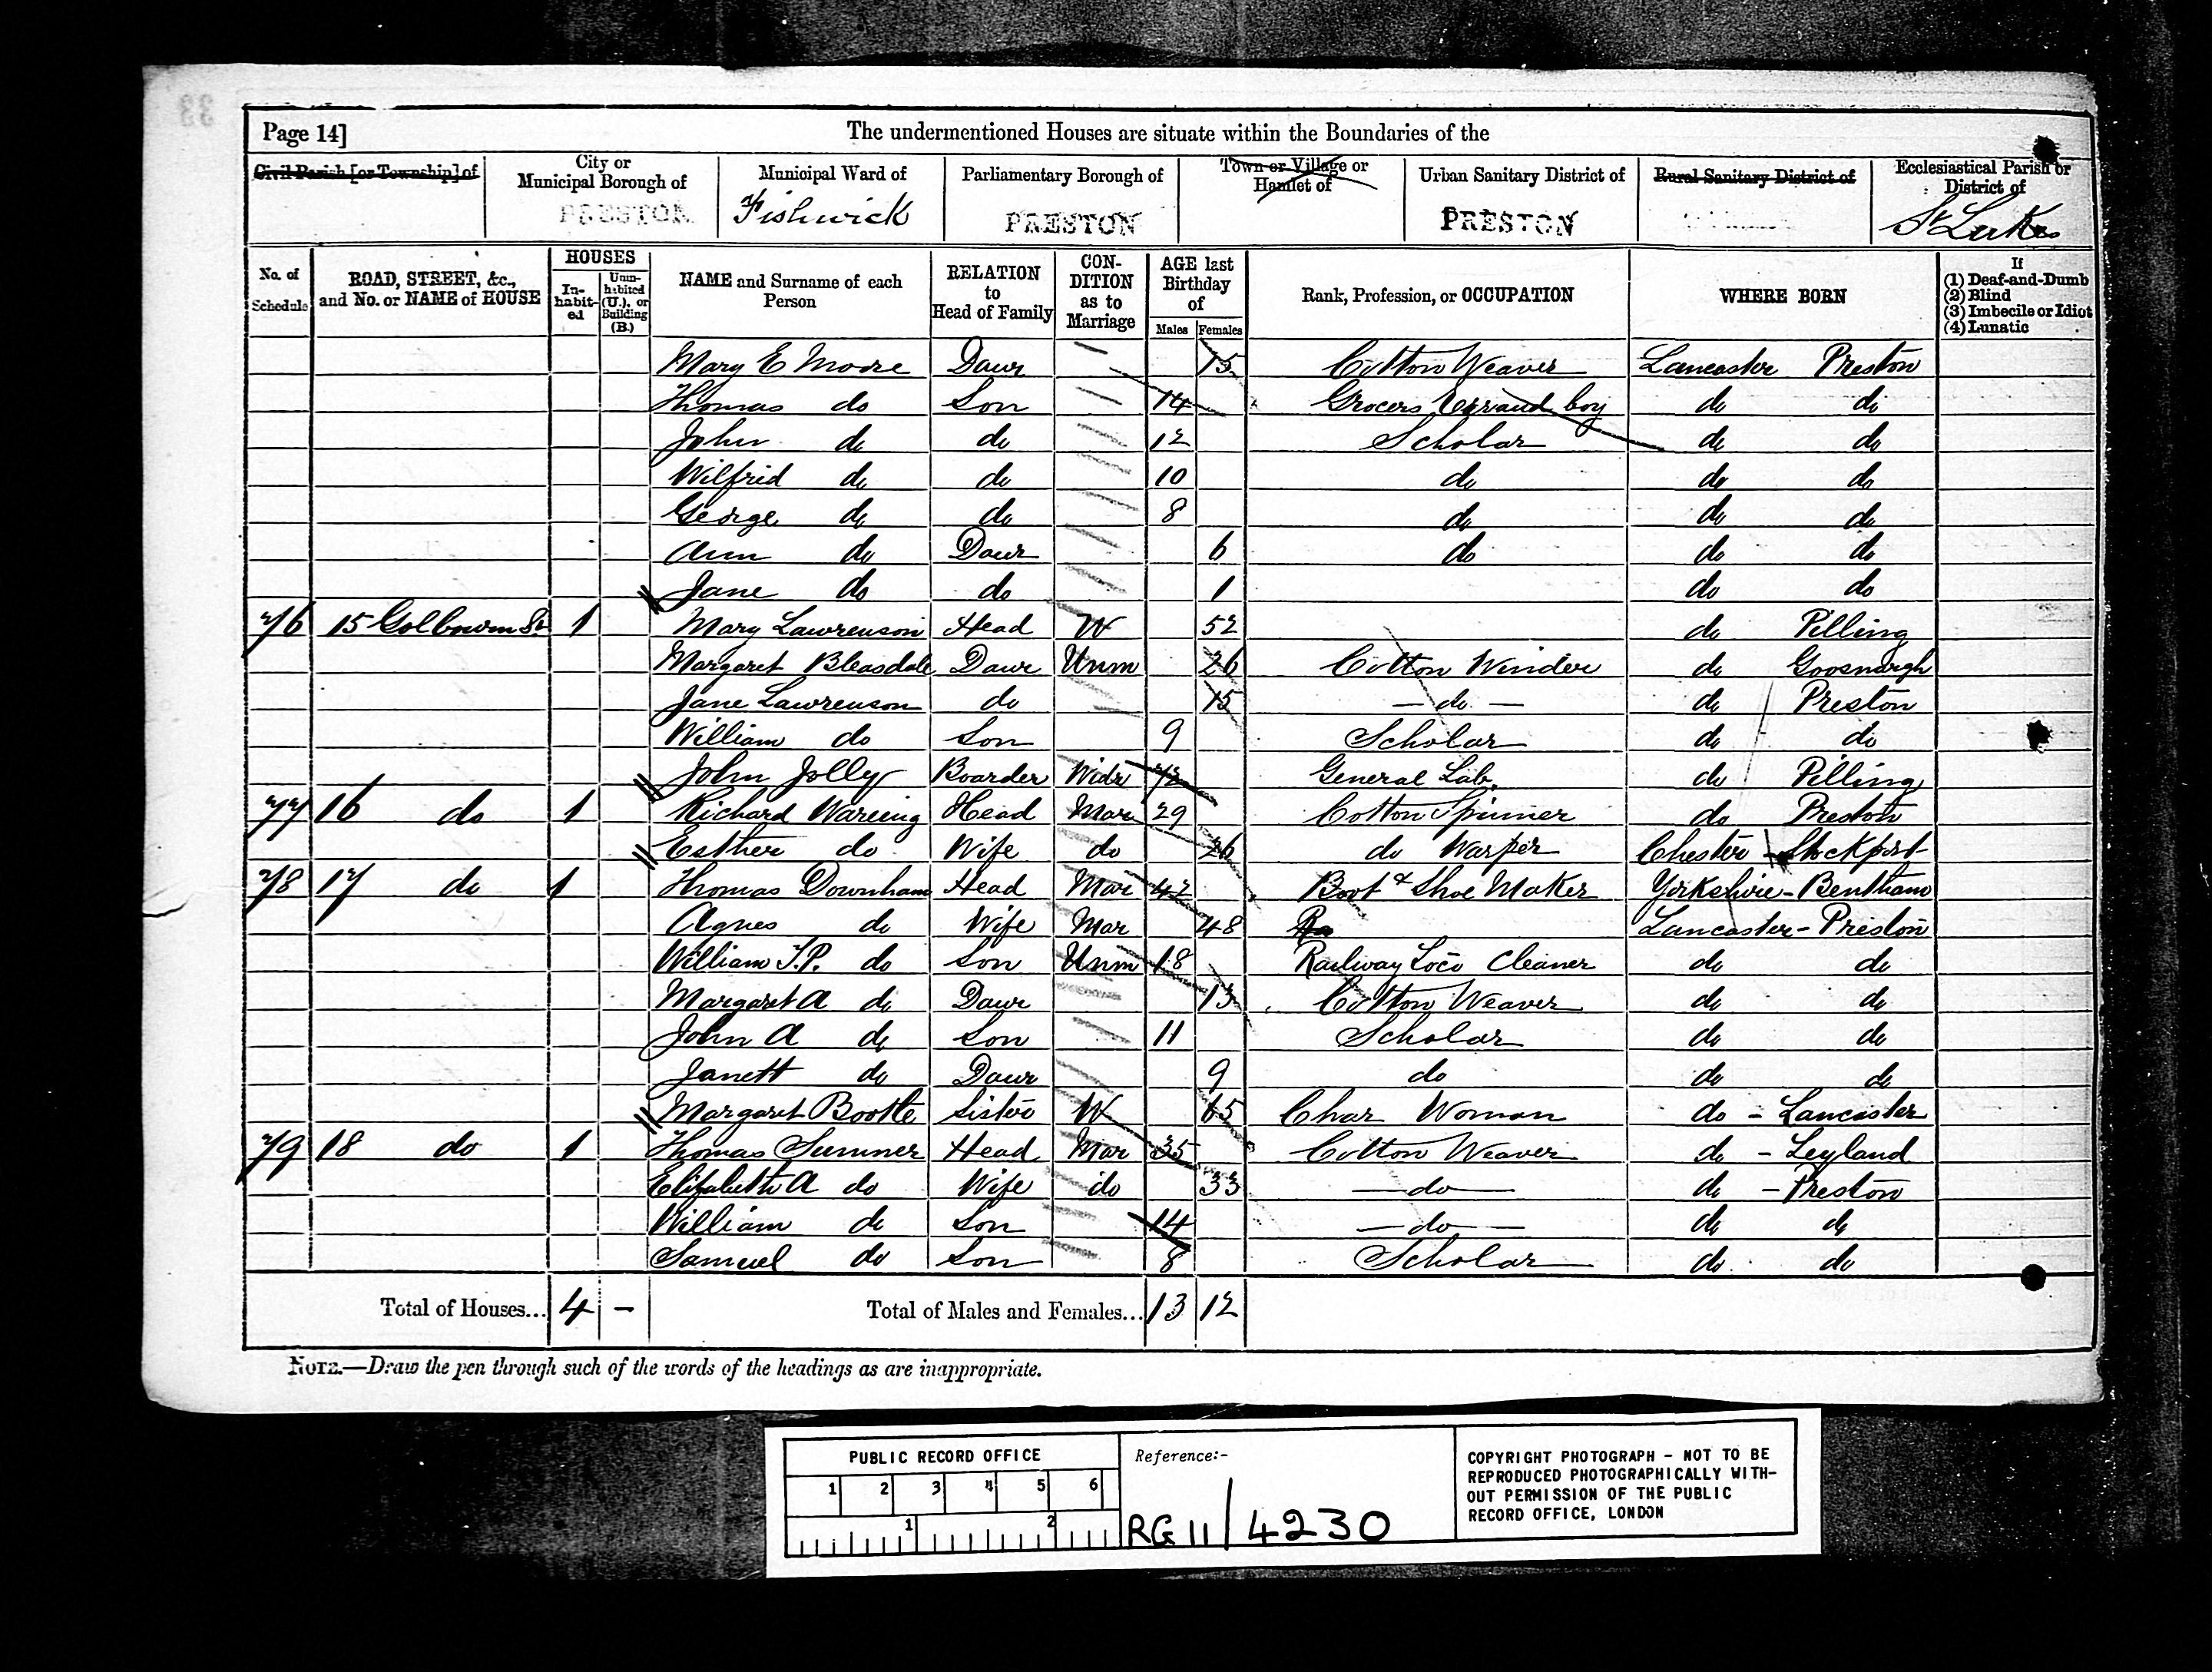 Page 14]
The undermentioned Houses are situate within the Boundaries of the
Civil Parish [or Township] of
City or Municipal Borough of
PRESTON
Municipal Ward of
Fishwick
Parliamentary Borough of
PRESTON
Town or Village or Hamlet of
Urban Sanitary District of
PRESTON
Rural Sanitary District of
Ecclesiastical Parish or District of
St Lukes
No. of Schedule
ROAD, STREET, &c., and No. or NAME of HOUSE
HOUSES
In-habit-ed
Unin-habited (U.), or Building (B.)
NAME and Surname of each Person
RELATION to Head of Family
CON-DITION as to Marriage
AGE last Birthday of
Males Females
Rank, Profession, or OCCUPATION
WHERE BORN
If
(1) Deaf-and-Dumb
(2) Blind
(3) Imbecile or Idiot
(4) Lunatic
Mary E Moore Daur 15 Cotton Weaver Lancaster Preston
Thomas do Son 14 Grocers Errand boy do do
John do do 12 Scholar do do
Wilfrid do do 10 do do do
George do do 8 do do do
Ann do Daur 6 do do do
Jane do do 1 do do
76 15 Golbourn St 1 Mary Lawrenson Head W 52 do Pilling
Margaret Bleasdale Daur Unm 26 Cotton Winder do Goosnargh
Jane Lawrenson do 15 — do — do Preston
William do Son 9 Scholar do do
John Jolly Boarder Widr 72 General Lab. do Pilling
77 16 do 1 Richard Wareing Head Mar 29 Cotton Spinner do Preston
Esther do Wife do 26 do Warper Chester - Stockport
78 17 do 1 Thomas Downham Head Mar 42 Boot & Shoe Maker Yorkshire - Bentham
Agnes do Wife Mar 48 Lancaster - Preston
William T.P. do Son Unm 18 Railway Loco Cleaner do do
Margaret A do Daur 13 Cotton Weaver do do
John A do Son 11 Scholar do do
Janett do Daur 9 do do do
Margaret Bootle Sister W 65 Char Woman do - Lancaster
79 18 do 1 Thomas Sumner Head Mar 35 Cotton Weaver do - Leyland
Elizabeth A do Wife do 33 — do — do - Preston
William do Son 14 — do — do do
Samuel do Son 8 Scholar do do
Total of Houses... 4 – Total of Males and Females... 13 12
NOTE.—Draw the pen through such of the words of the headings as are inappropriate.
PUBLIC RECORD OFFICE
1 2 3 4 5 6
1 2
Reference:-
RG 11 / 4230
COPYRIGHT PHOTOGRAPH - NOT TO BE
REPRODUCED PHOTOGRAPHICALLY WITH-
OUT PERMISSION OF THE PUBLIC
RECORD OFFICE, LONDON